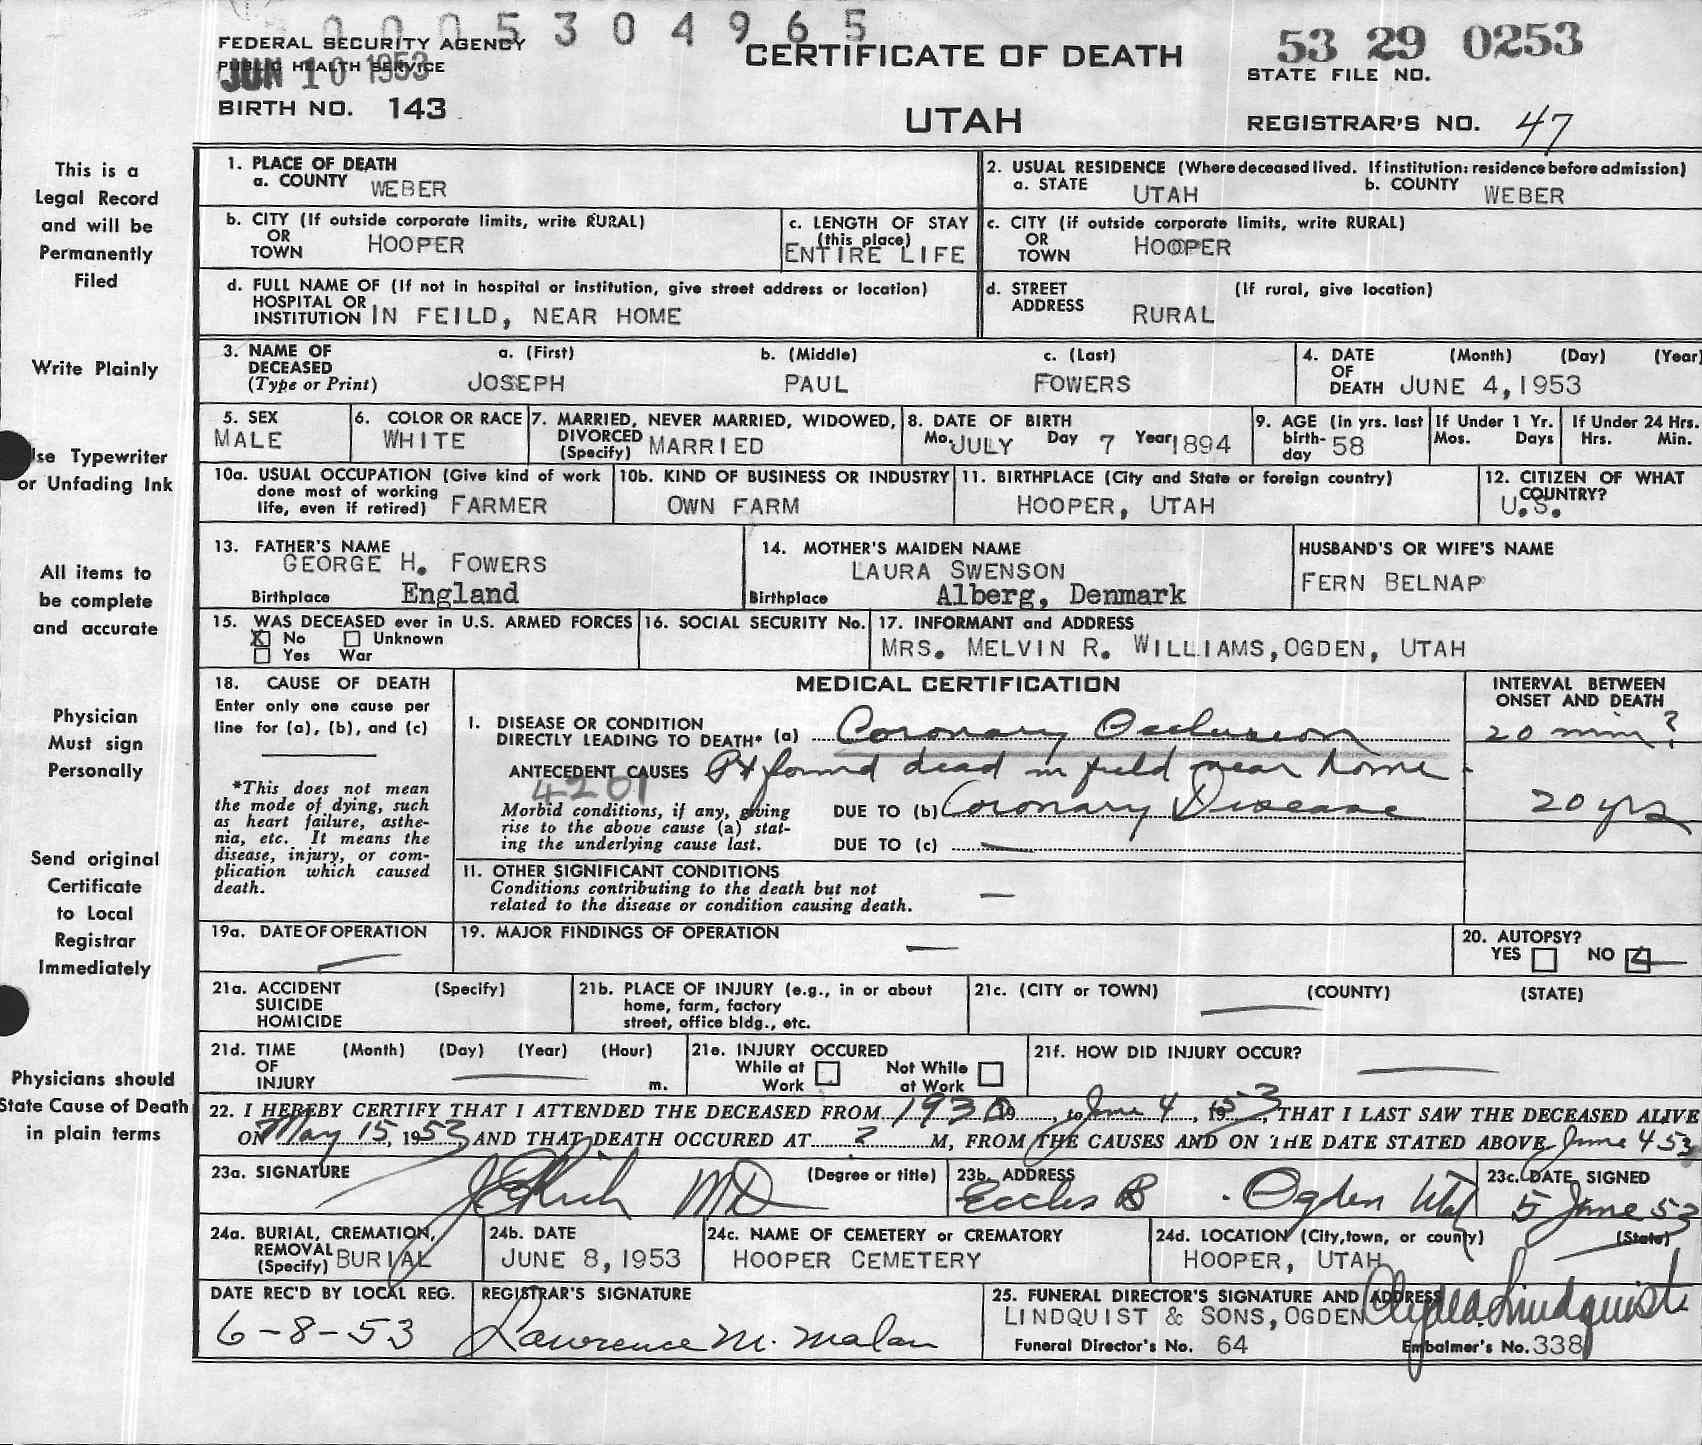 0005304965
FEDERAL SECURITY AGENCY
PUBLIC HEALTH SERVICE
JUN 10 1953
BIRTH NO. 143
CERTIFICATE OF DEATH
UTAH
53 29 0253
STATE FILE NO.
REGISTRAR'S NO. 47
This is a
Legal Record
and will be
Permanently
Filed
Write Plainly
Use Typewriter
or Unfading Ink
All items to
be complete
and accurate
Physician
Must sign
Personally
Send original
Certificate
to Local
Registrar
Immediately
Physicians should
State Cause of Death
in plain terms
1. PLACE OF DEATH
a. COUNTY WEBER
2. USUAL RESIDENCE (Where deceased lived. If institution: residence before admission)
a. STATE UTAH b. COUNTY WEBER
b. CITY (If outside corporate limits, write RURAL)
OR
TOWN HOOPER
c. LENGTH OF STAY
(this place)
ENTIRE LIFE
c. CITY (if outside corporate limits, write RURAL)
OR
TOWN HOOPER
d. FULL NAME OF (If not in hospital or institution, give street address or location)
HOSPITAL OR
INSTITUTION IN FEILD, NEAR HOME
d. STREET (If rural, give location)
ADDRESS RURAL
3. NAME OF a. (First) b. (Middle) c. (Last)
DECEASED
(Type or Print) JOSEPH PAUL FOWERS
4. DATE (Month) (Day) (Year)
OF
DEATH JUNE 4, 1953
5. SEX
MALE
6. COLOR OR RACE
WHITE
7. MARRIED, NEVER MARRIED, WIDOWED,
DIVORCED
(Specify) MARRIED
8. DATE OF BIRTH
Mo. JULY Day 7 Year 1894
9. AGE (in yrs. last
birth-
day 58
If Under 1 Yr.
Mos. Days
If Under 24 Hrs.
Hrs. Min.
10a. USUAL OCCUPATION (Give kind of work
done most of working
life, even if retired) FARMER
10b. KIND OF BUSINESS OR INDUSTRY
OWN FARM
11. BIRTHPLACE (City and State or foreign country)
HOOPER, UTAH
12. CITIZEN OF WHAT
COUNTRY?
U.S.
13. FATHER'S NAME
GEORGE H. FOWERS
Birthplace England
14. MOTHER'S MAIDEN NAME
LAURA SWENSON
Birthplace Alberg, Denmark
HUSBAND'S OR WIFE'S NAME
FERN BELNAP
15. WAS DECEASED ever in U.S. ARMED FORCES
X No Unknown
Yes War
16. SOCIAL SECURITY No.
17. INFORMANT and ADDRESS
MRS. MELVIN R. WILLIAMS, OGDEN, UTAH
18. CAUSE OF DEATH
Enter only one cause per
line for (a), (b), and (c)
*This does not mean
the mode of dying, such
as heart failure, asthe-
nia, etc. It means the
disease, injury, or com-
plication which caused
death.
MEDICAL CERTIFICATION
INTERVAL BETWEEN
ONSET AND DEATH
I. DISEASE OR CONDITION
DIRECTLY LEADING TO DEATH* (a) Coronary Occlusion 20 min?
ANTECEDENT CAUSES Pt found dead in field near home
4201
Morbid conditions, if any, giving
rise to the above cause (a) stat-
ing the underlying cause last.
DUE TO (b) Coronary Disease 20 yrs
DUE TO (c) —
11. OTHER SIGNIFICANT CONDITIONS
Conditions contributing to the death but not
related to the disease or condition causing death. —
19a. DATE OF OPERATION
—
19. MAJOR FINDINGS OF OPERATION
—
20. AUTOPSY?
YES NO
21a. ACCIDENT (Specify)
SUICIDE
HOMICIDE
21b. PLACE OF INJURY (e.g., in or about
home, farm, factory
street, office bldg., etc.
21c. (CITY or TOWN) (COUNTY) (STATE)
—
21d. TIME (Month) (Day) (Year) (Hour)
OF
INJURY — m.
21e. INJURY OCCURED
While at Work Not While at Work
21f. HOW DID INJURY OCCUR?
—
22. I HEREBY CERTIFY THAT I ATTENDED THE DECEASED FROM 1930 19 , to June 4, 1953, THAT I LAST SAW THE DECEASED ALIVE
ON May 15, 1953 AND THAT DEATH OCCURED AT 2 M, FROM THE CAUSES AND ON THE DATE STATED ABOVE June 4 53
23a. SIGNATURE (Degree or title)
Rich MD
23b. ADDRESS
Eccles B. Ogden Utah
23c. DATE SIGNED
5 June 53
24a. BURIAL, CREMATION,
REMOVAL
(Specify) BURIAL
24b. DATE
JUNE 8, 1953
24c. NAME OF CEMETERY or CREMATORY
HOOPER CEMETERY
24d. LOCATION (City, town, or county) (State)
HOOPER, UTAH
DATE REC'D BY LOCAL REG.
6-8-53
REGISTRAR'S SIGNATURE
Lawrence M. Malan
25. FUNERAL DIRECTOR'S SIGNATURE AND ADDRESS
LINDQUIST & SONS, OGDEN Clyde A. Lindquist
Funeral Director's No. 64 Embalmer's No. 338